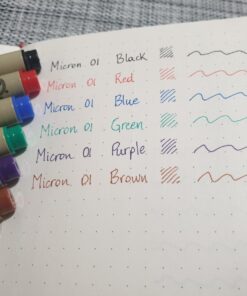 Micron 01 Black
Micron 01 Red
Micron 01 Blue
Micron 01 Green
Micron 01 Purple
Micron 01 Brown